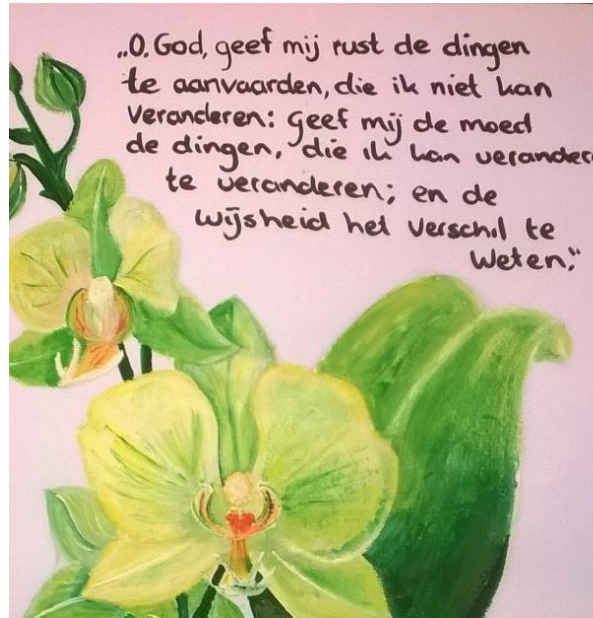 „O, God, geef mij rust de dingen
te aanvaarden, die ik niet kan
veranderen: geef mij de moed
de dingen, die ik kan verander
te veranderen; en de
wijsheid het verschil te
weten.”